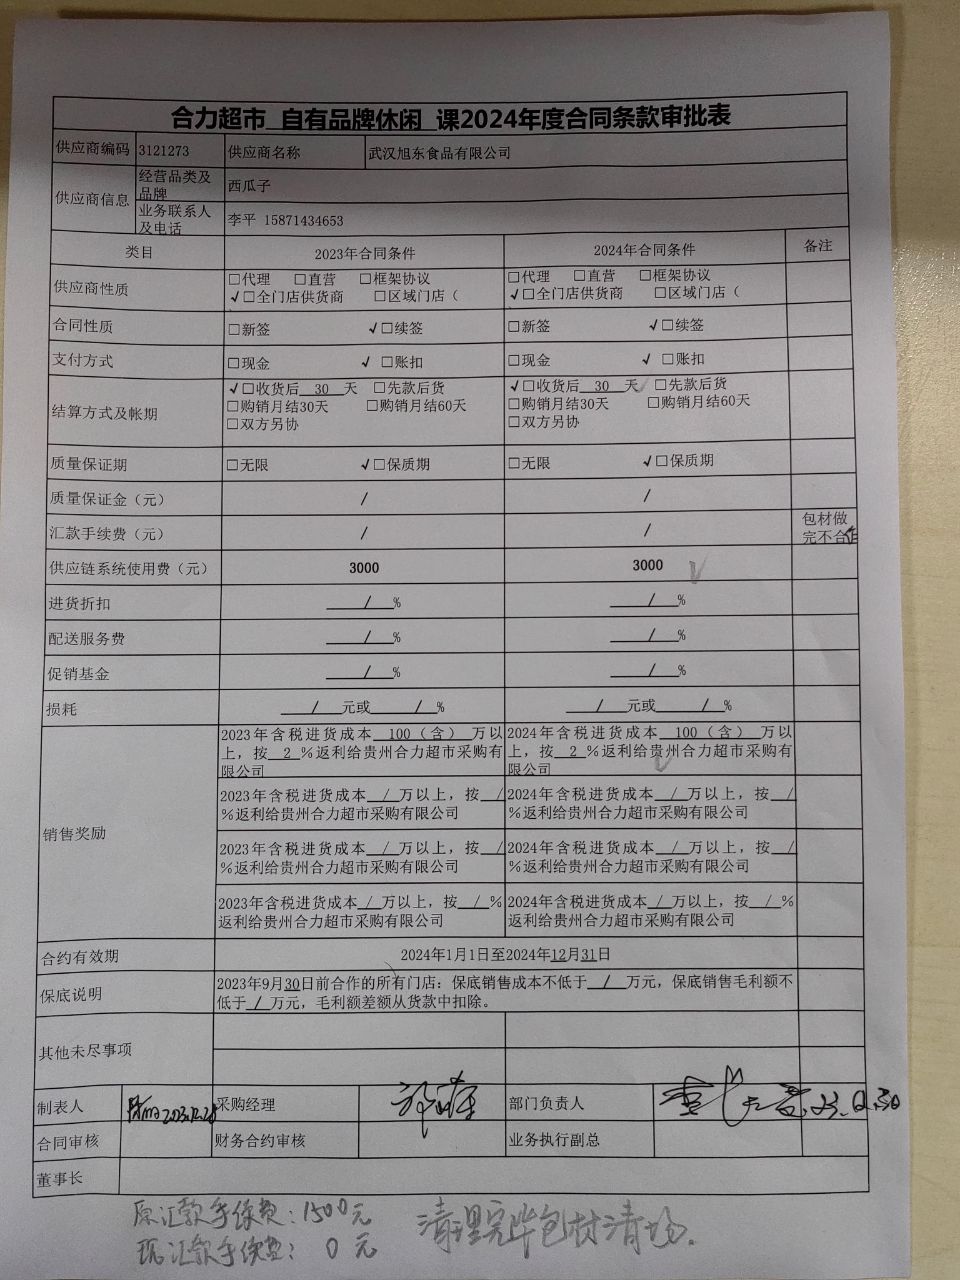 合力超市 自有品牌休闲 课2024年度合同条款审批表
供应商编码 3121273 供应商名称 武汉旭东食品有限公司
供应商信息 经营品类及品牌 西瓜子
业务联系人及电话 李平 15871434653
类目 2023年合同条件 2024年合同条件 备注
供应商性质 □代理 □直营 □框架协议 □代理 □直营 □框架协议
√□全门店供货商 □区域门店（ √□全门店供货商 □区域门店（
合同性质 □新签 √□续签 □新签 √□续签
支付方式 □现金 √ □账扣 □现金 √ □账扣
结算方式及帐期 √□收货后 30 天 □先款后货 √□收货后 30 天 □先款后货
□购销月结30天 □购销月结60天 □购销月结30天 □购销月结60天
□双方另协 □双方另协
质量保证期 □无限 √□保质期 □无限 √□保质期
质量保证金（元） / /
汇款手续费（元） / / 包材做完不合作
供应链系统使用费（元） 3000 3000
进货折扣 / % / %
配送服务费 / % / %
促销基金 / % / %
损耗 / 元或 / % / 元或 / %
销售奖励
2023年含税进货成本 100（含） 万以上，按 2 %返利给贵州合力超市采购有限公司 2024年含税进货成本 100（含） 万以上，按 2 %返利给贵州合力超市采购有限公司
2023年含税进货成本 / 万以上，按 / %返利给贵州合力超市采购有限公司 2024年含税进货成本 / 万以上，按 / %返利给贵州合力超市采购有限公司
2023年含税进货成本 / 万以上，按 / %返利给贵州合力超市采购有限公司 2024年含税进货成本 / 万以上，按 / %返利给贵州合力超市采购有限公司
2023年含税进货成本 / 万以上，按 / %返利给贵州合力超市采购有限公司 2024年含税进货成本 / 万以上，按 / %返利给贵州合力超市采购有限公司
合约有效期 2024年1月1日至2024年12月31日
保底说明 2023年9月30日前合作的所有门店：保底销售成本不低于 / 万元，保底销售毛利额不
低于 / 万元，毛利额差额从货款中扣除。
其他未尽事项
制表人 2023.12.28 采购经理 部门负责人 23.12.30
合同审核 财务合约审核 业务执行副总
董事长
原汇款手续费：1500元 清理完毕包材清场.
现汇款手续费：0元